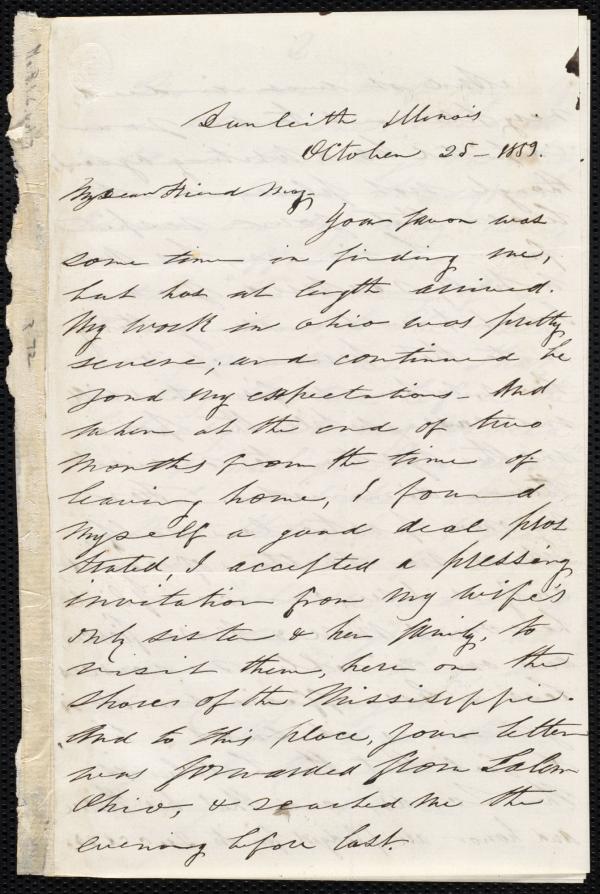 Dunleith Illinois
October 25 - 1859.
My Dear Friend May
Your favor was
some time in finding me,
but has at length arrived.
My work in Ohio was pretty
severe; and continued be
yond my expectations - And
when at the end of two
months from the time of
leaving home, I found
myself a good deal pros
trated, I accepted a pressing
invitation from my wife's
only sister & her family, to
visit them, here on the
shores of the Mississippi.
And to this place, your letter
was forwarded from Salem
Ohio, & reached me the
evening before last.